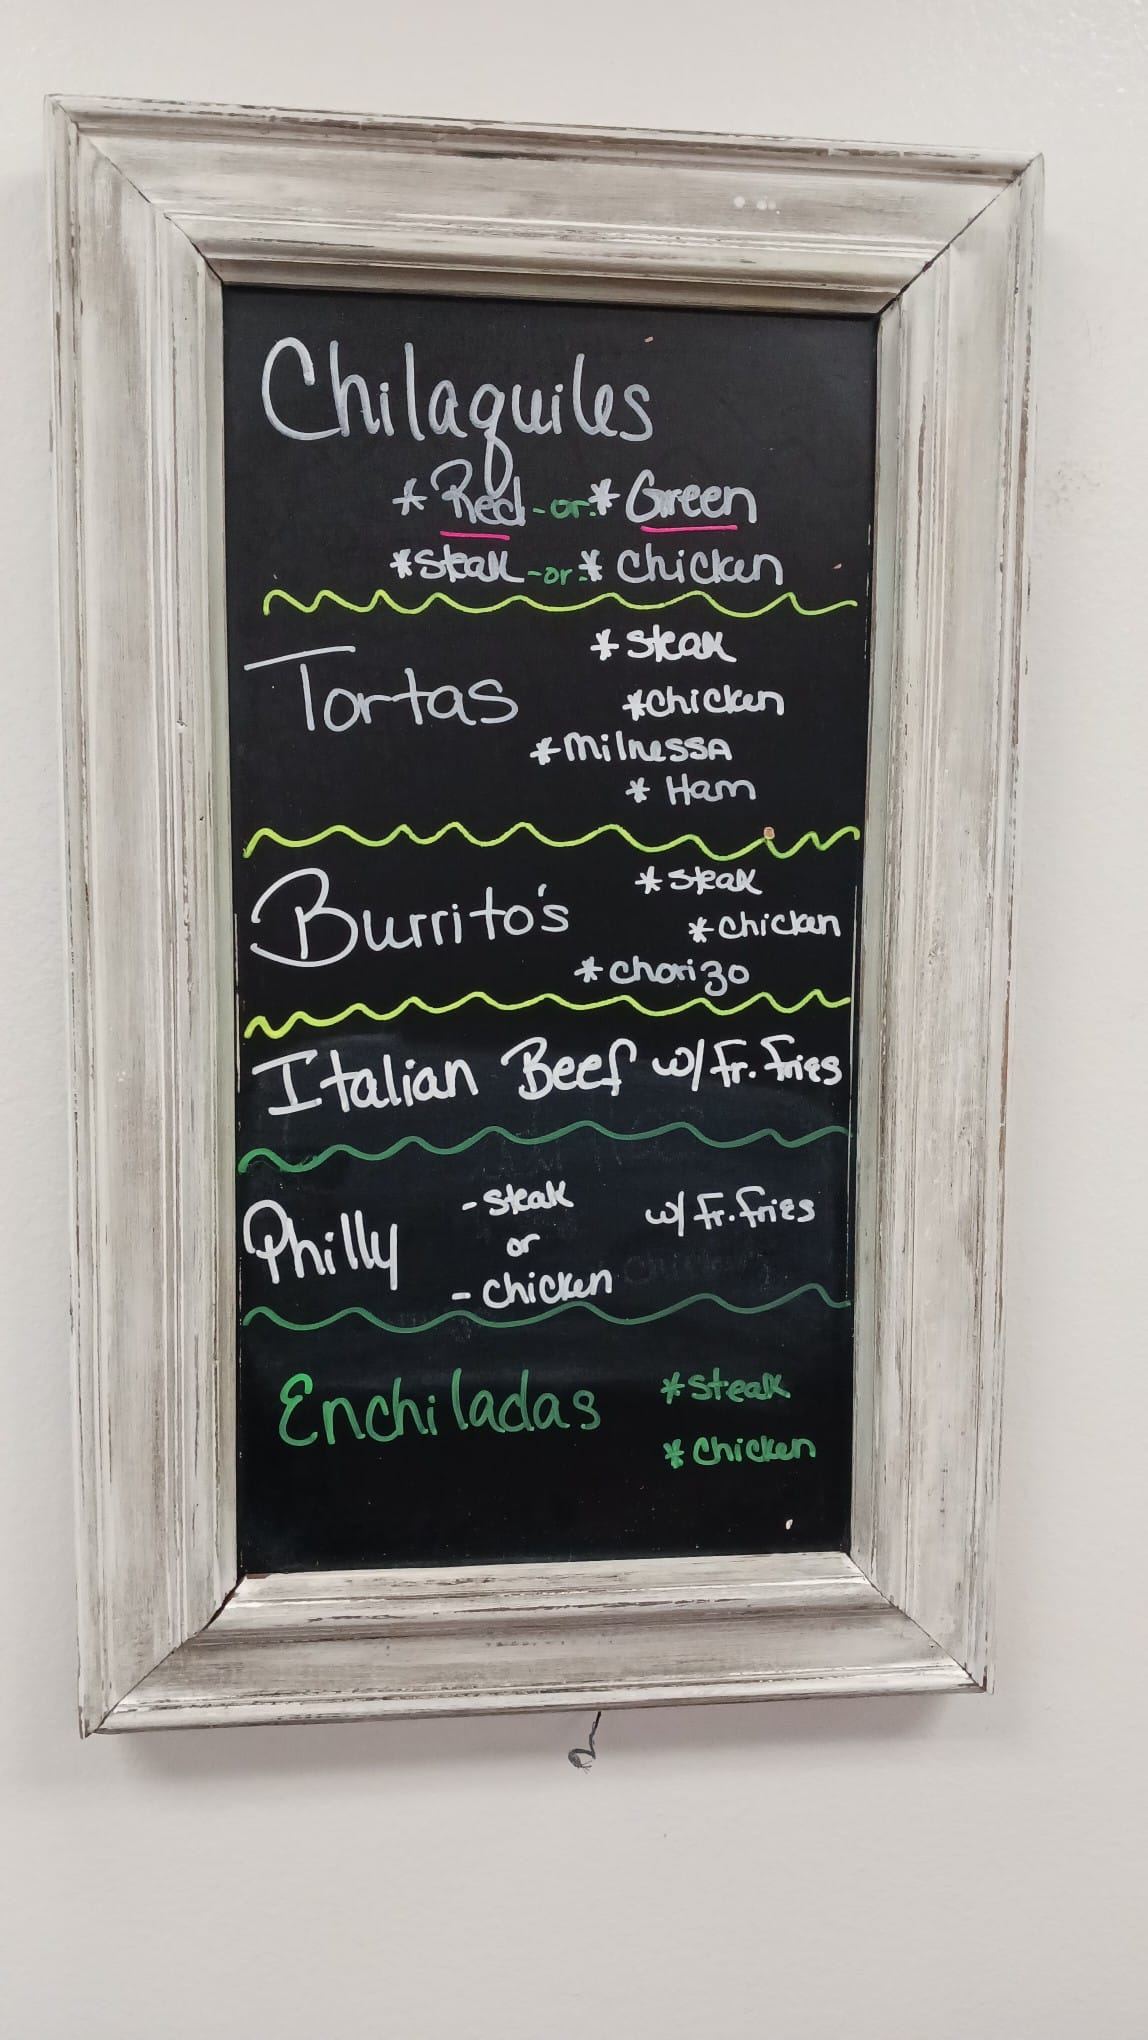 Chilaquiles
* Red -or- * Green
* Steak -or- * Chicken
Tortas
* Steak
* Chicken
* MilnessA
* Ham
Burrito's
* Steak
* Chicken
* Chorizo
Italian Beef w/ Fr. Fries
Philly
- Steak
or
- Chicken
w/ Fr. Fries
Enchiladas
* Steak
* Chicken